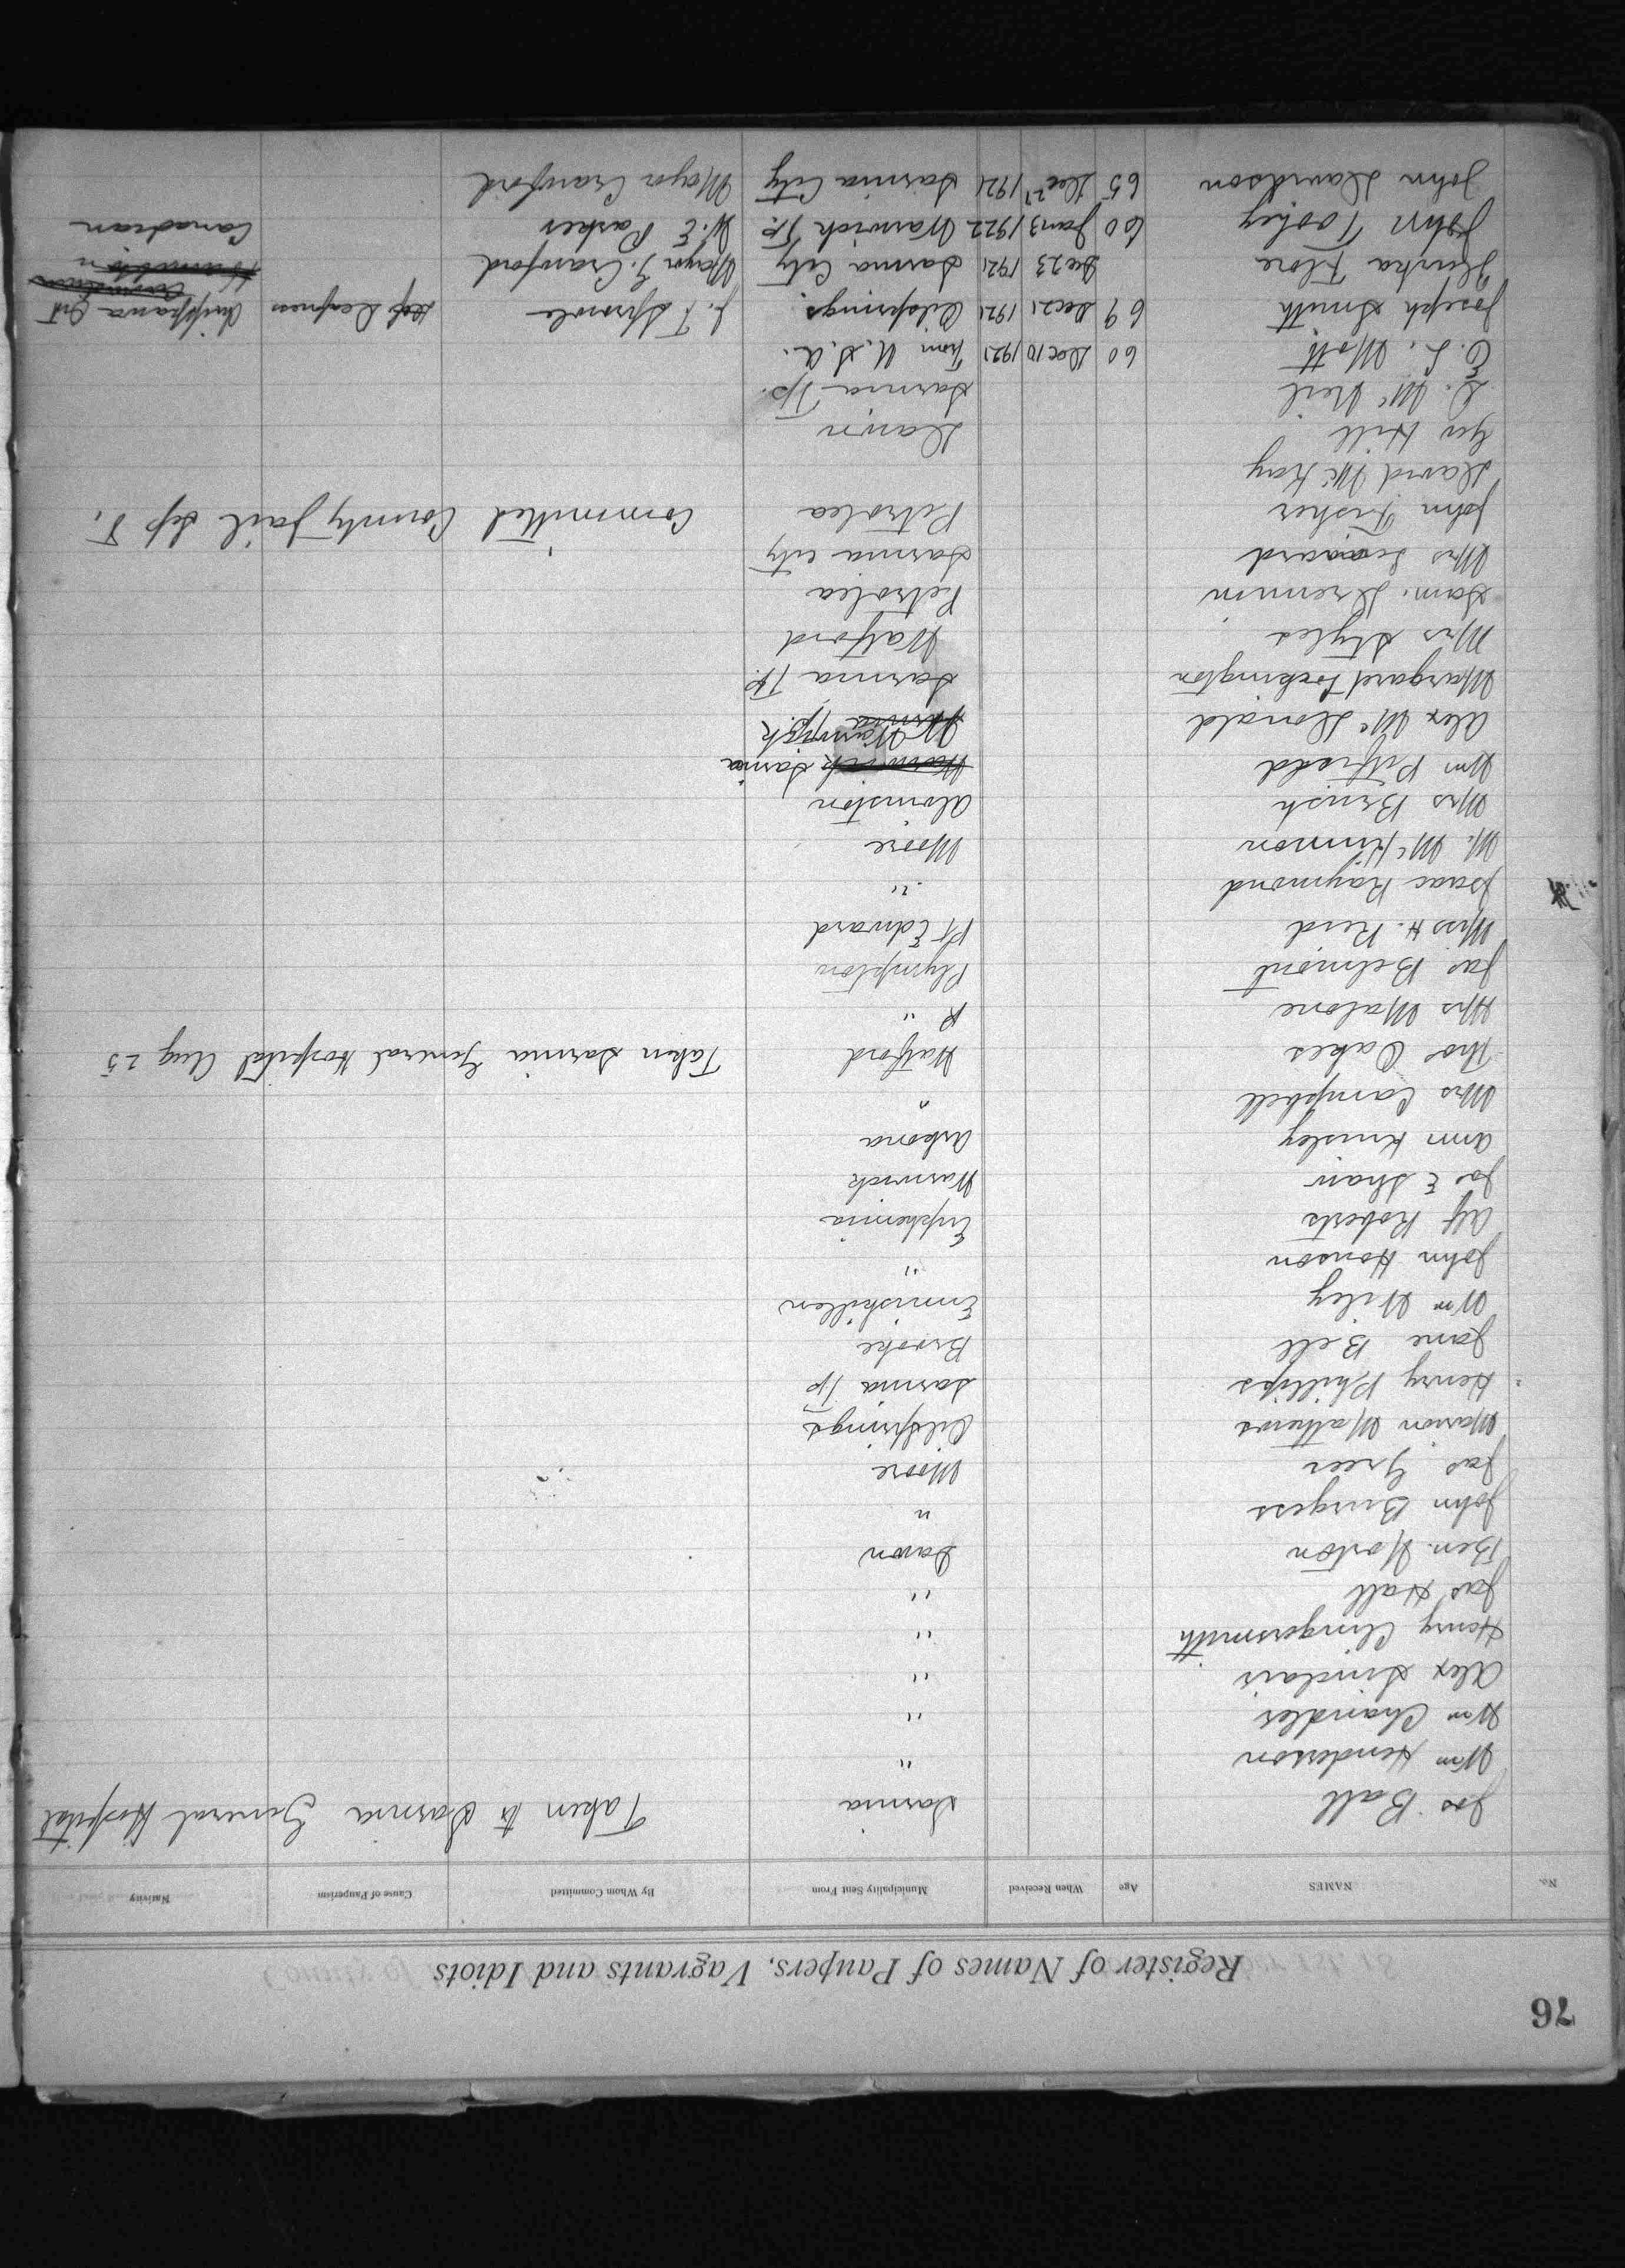 76
Register of Names of Paupers, Vagrants and Idiots
No. NAMES Age When Received Municipality Sent From By Whom Committed Cause of Pauperism Nativity
Jos Ball Sarnia Taken to Sarnia General Hospital
Wm Henderson "
Wm Chandler "
Alex Sinclair "
Henry Clingersmith "
Jas Hall "
Ben. Horton Dawn
John Burgess "
Jas Greer Moore
Marion Mathews Oilsprings
Henry Phillips Sarnia Tp
Jane Bell Brooke
Wm Wiley Enniskillen
John Honson "
Alf Roberts Euphemia
Jos E Shaw Warwick
Ann Knisley Arkona
Mrs Campbell "
Thos Oakes Watford Taken Sarnia General Hospital Aug 25
Mrs Malone "
Jas Belmont Plympton
Mrs H. Reid Pt Edward
Isaac Raymond "
M. McKinnon Moore
Mrs Brush Alvinston
Wm Pitfield Warwick Sarnia
Alex McDonald Warwick
Margaret Lockington Sarnia Tp.
Mrs Styles Watford
Sam. Drennin Petrolea
Mrs Sarnia City
John Fisher Petrolea Committed County Jail Sep 8.
David McKay
Geo Hill Dawn
D. McNeil Sarnia Tp.
E. L. Mott 60 Dec 10 1921 From U.S.A.
Joseph Smith 69 Dec 21 1921 Oilsprings J. F. Deafness Chippawa Ont
Flore Dec 23 1921 Sarnia City Mayor J. Crawford
John Tooley 60 Jan 3 1922 Warwick Tp. W. E. Parker Canadian
John Davidson 65 Dec 27 1921 Sarnia City Mayor Crawford